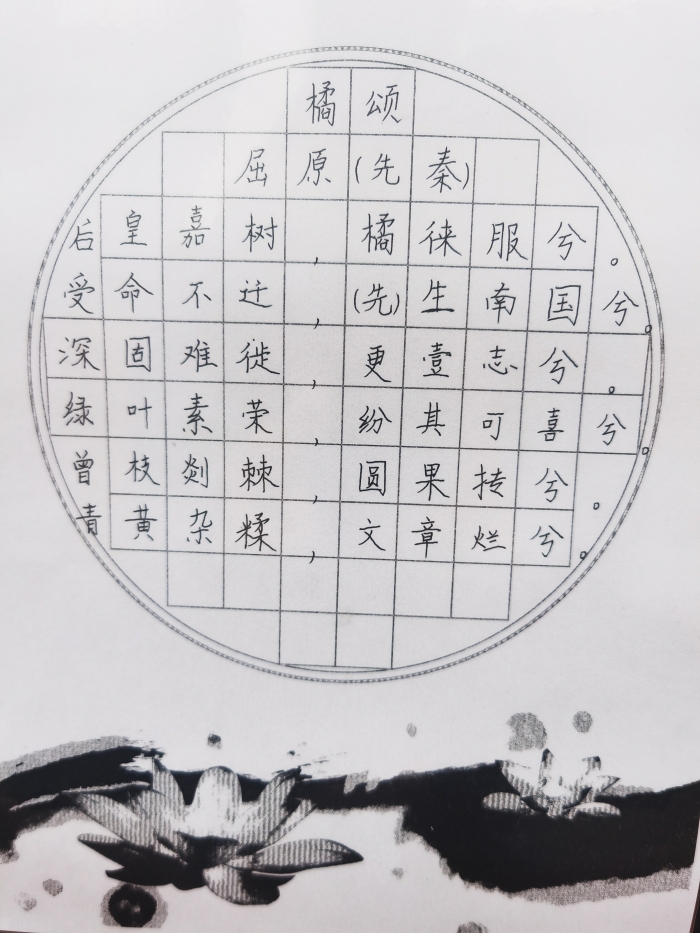 橘颂
屈原(先秦)
后皇嘉树,橘徕服兮。
受命不迁,(先)生南国兮。
深固难徙,更壹志兮。
绿叶素荣,纷其可喜兮。
曾枝剡棘,圆果抟兮。
青黄杂糅,文章烂兮。